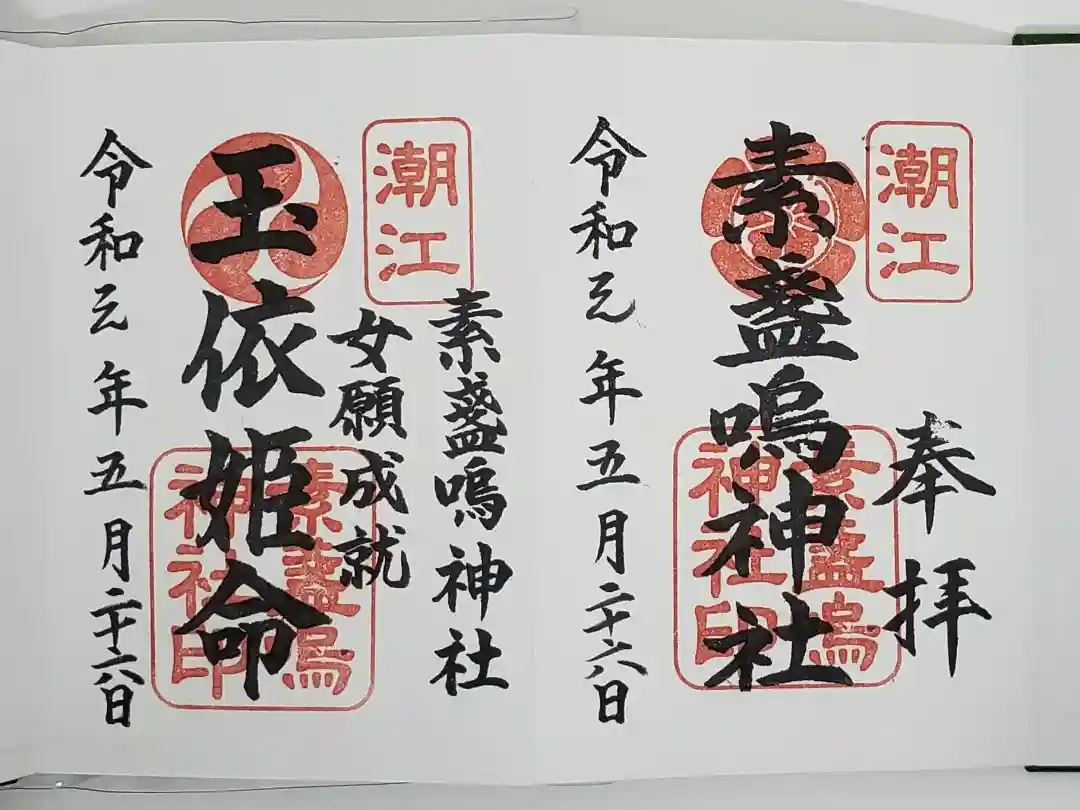 潮江
奉拝
素盞嗚神社
素盞嗚
神社印
令和元年五月二十六日
潮江
素盞嗚神社
女願成就
玉依姫命
素盞嗚
神社印
令和元年五月二十六日